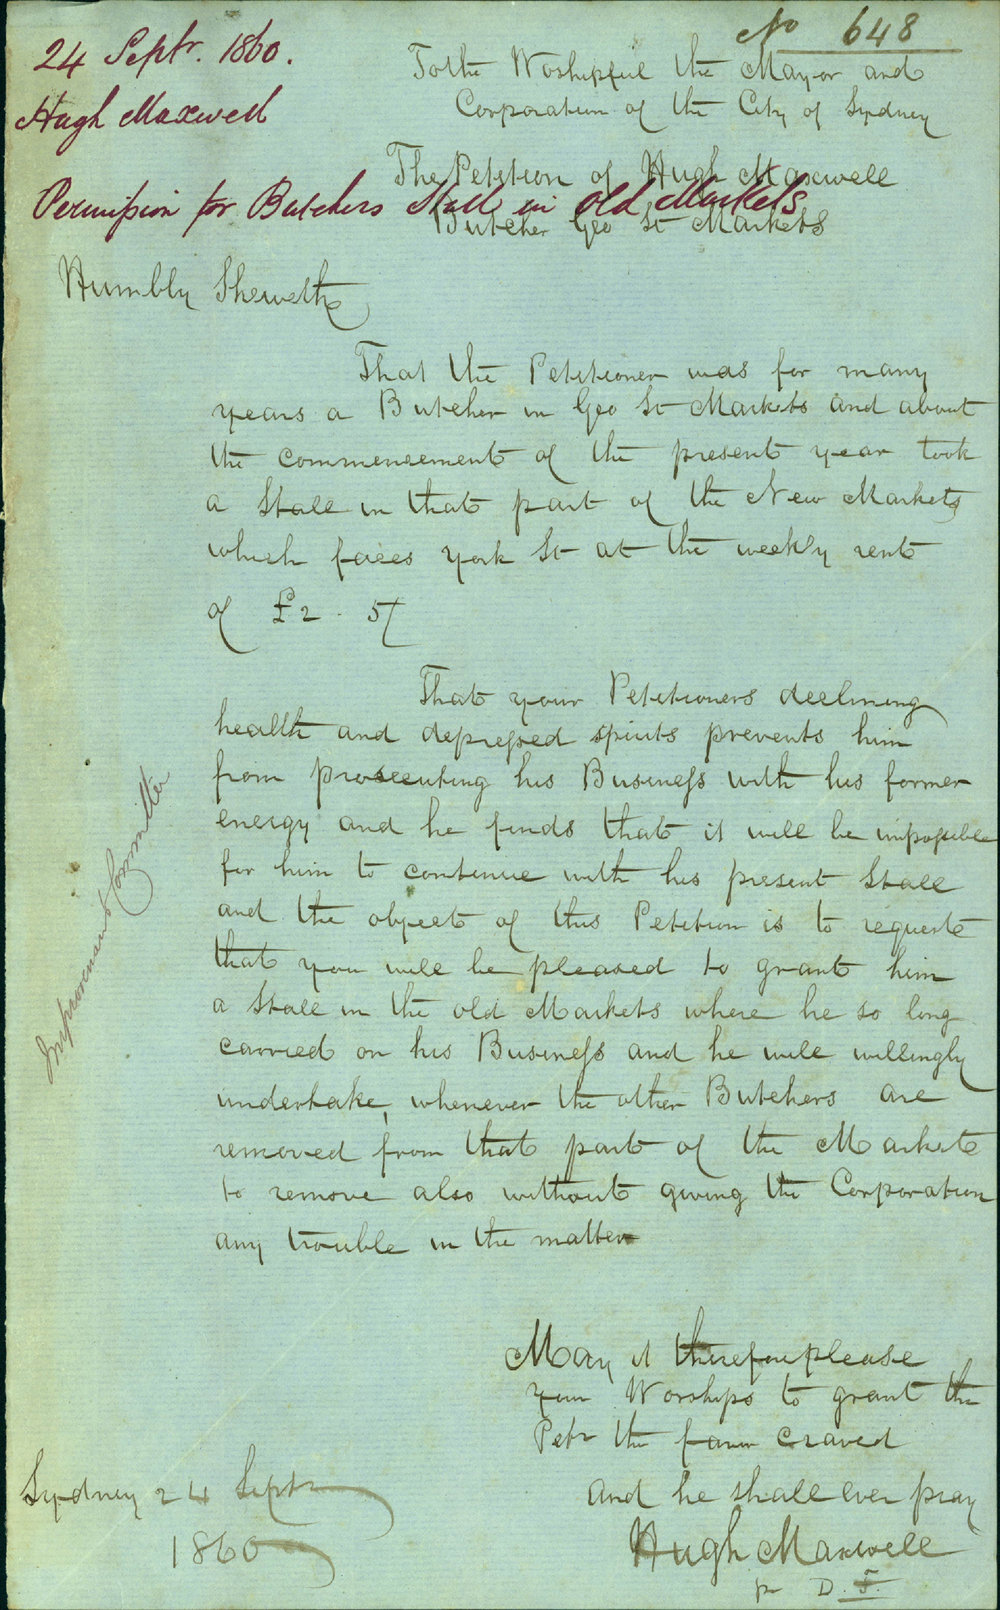 No 648
24 Septr. 1860.
Hugh Maxwell
Permission for Butchers Stall in Old Markets
To the Woshipful the Mayor and
Corporation of the City of Sydney
The Petition of Hugh Maxwell
Butcher Geo St Markets
Humbly Sheweth
That the Petitioner was for many
years a Butcher in Geo St Markets and about
the commencement of the present year took
a Stall in that part of the New Markets
which faces York St at the weekly rent
of £2 . 5/
That your Petitioners declining
health and depressed spirits prevents him
from prosecuting his Business with his former
energy and he finds that it will be impossible
for him to continue with his present Stall
and the object of this Petition is to request
that you will be pleased to grant him
a Stall in the old Markets where he so long
carried on his Business and he will willingly
undertake, whenever the other Butchers are
removed from that part of the Markets
to remove also without giving the Corporation
any trouble in the matter
Improvement Committee
May it therefore please
your Worships to grant the
Petr the favor craved
And he shall ever pray
Hugh Maxwell
pr D. F.
Sydney 24 Septr
1860